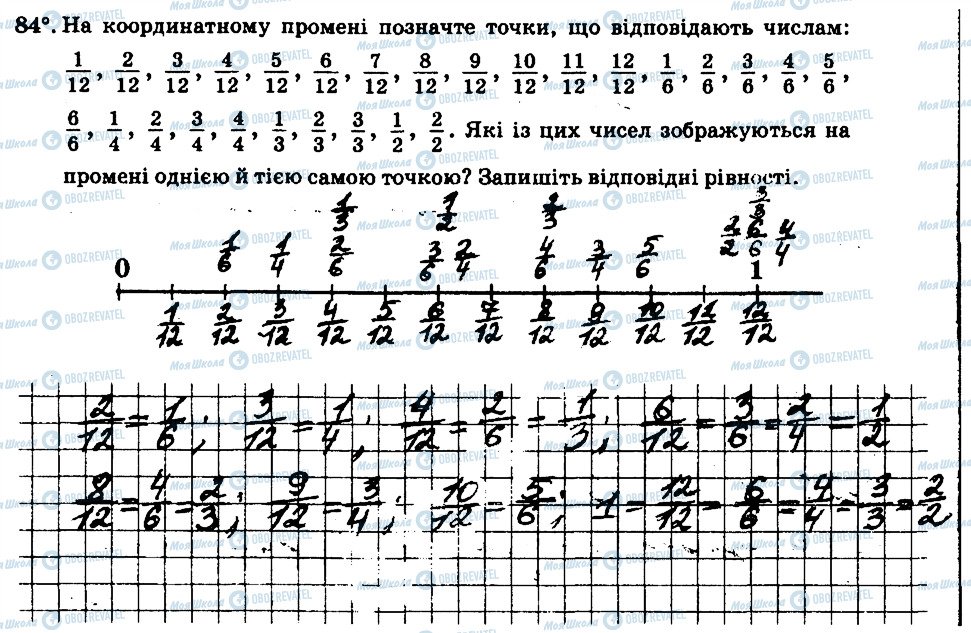 84°. На координатному промені позначте точки, що відповідають числам:
1/12, 2/12, 3/12, 4/12, 5/12, 6/12, 7/12, 8/12, 9/12, 10/12, 11/12, 12/12, 1/6, 2/6, 3/6, 4/6, 5/6,
6/6, 1/4, 2/4, 3/4, 4/4, 1/3, 2/3, 3/3, 1/2, 2/2. Які із цих чисел зображуються на
промені однією й тією самою точкою? Запишіть відповідні рівності.
1/3 1/2 2/3 3/3
0 1/6 1/4 2/6 3/6 2/4 4/6 3/4 5/6 2/2 6/6 4/4 1
1/12 2/12 3/12 4/12 5/12 6/12 7/12 8/12 9/12 10/12 11/12 12/12
2/12 = 1/6; 3/12 = 1/4; 4/12 = 2/6 = 1/3; 6/12 = 3/6 = 2/4 = 1/2
8/12 = 4/6 = 2/3; 9/12 = 3/4; 10/12 = 5/6; 1 = 12/12 = 6/6 = 4/4 = 3/3 = 2/2
МояШкола OBOZREVATEL